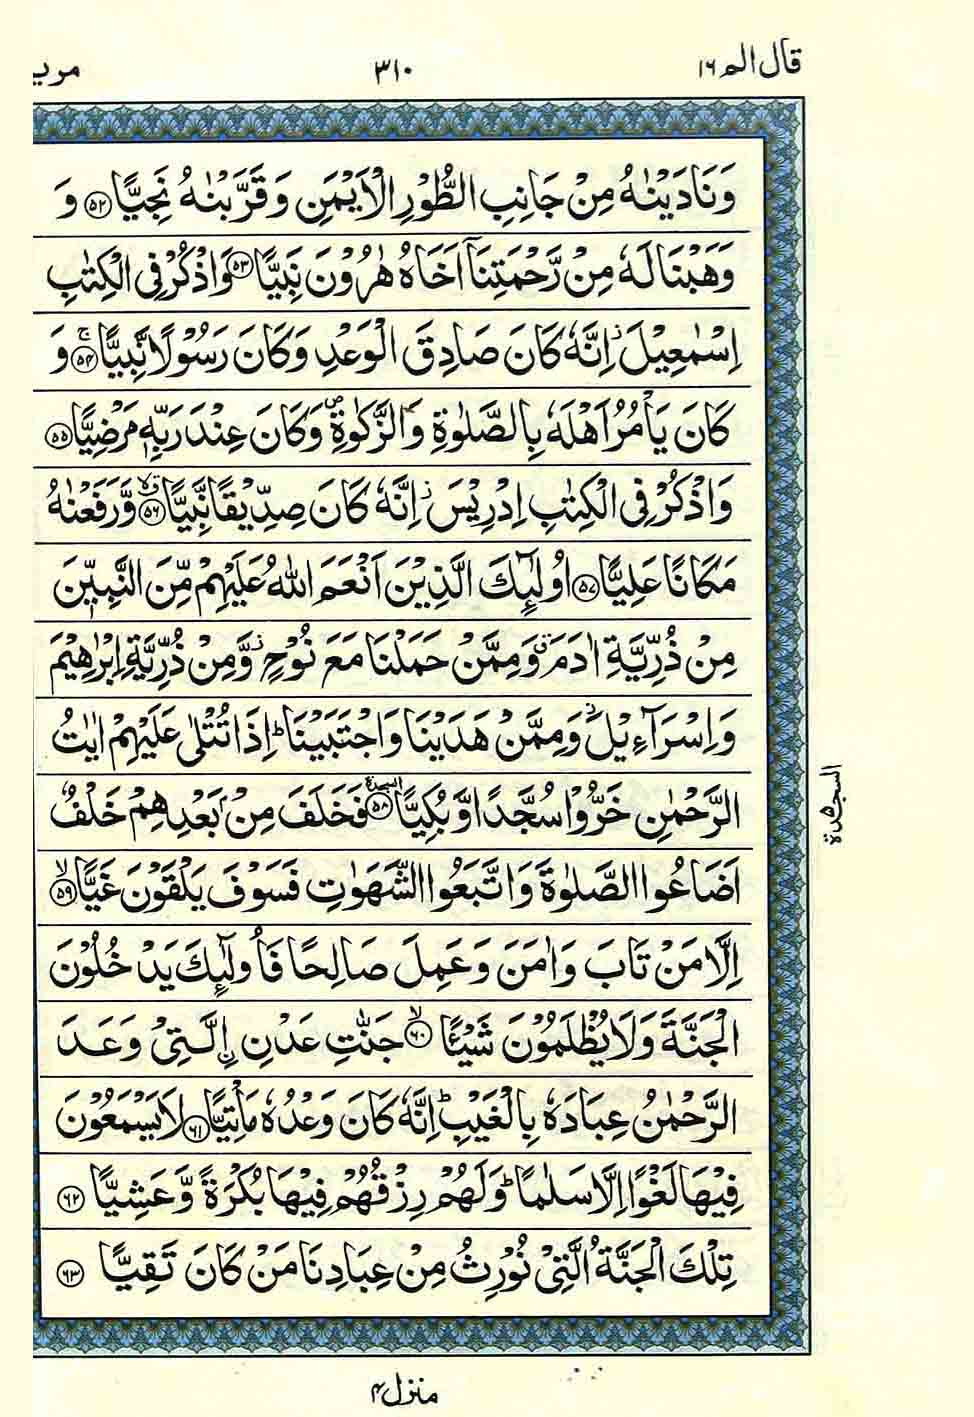 قال الم ١٦
٣١٠
مري
وَنَادَيْنٰهُ مِنْ جَانِبِ الطُّوْرِ الْاَيْمَنِ وَقَرَّبْنٰهُ نَجِيًّا ﴿٥٢﴾ وَ
وَهَبْنَا لَهٗ مِنْ رَّحْمَتِنَآ اَخَاهُ هٰرُوْنَ نَبِيًّا ﴿٥٣﴾ وَاذْكُرْ فِى الْكِتٰبِ
اِسْمٰعِيْلَ ۡ اِنَّهٗ كَانَ صَادِقَ الْوَعْدِ وَكَانَ رَسُوْلًا نَّبِيًّا ۚ ﴿٥٤﴾ وَ
كَانَ يَاْمُرُ اَهْلَهٗ بِالصَّلٰوةِ وَالزَّكٰوةِ ۪ وَكَانَ عِنْدَ رَبِّهٖ مَرْضِيًّا ﴿٥٥﴾
وَاذْكُرْ فِى الْكِتٰبِ اِدْرِيْسَ ۡ اِنَّهٗ كَانَ صِدِّيْقًا نَّبِيًّا ﴿٥٦﴾ وَّرَفَعْنٰهُ
مَكَانًا عَلِيًّا ﴿٥٧﴾ اُولٰٓئِكَ الَّذِيْنَ اَنْعَمَ اللّٰهُ عَلَيْهِمْ مِّنَ النَّبِيّٖنَ
مِنْ ذُرِّيَّةِ اٰدَمَ ۗ وَمِمَّنْ حَمَلْنَا مَعَ نُوْحٍ ۡ وَّمِنْ ذُرِّيَّةِ اِبْرٰهِيْمَ
وَاِسْرَآءِيْلَ ۡ وَمِمَّنْ هَدَيْنَا وَاجْتَبَيْنَا ؕ اِذَا تُتْلٰى عَلَيْهِمْ اٰيٰتُ
الرَّحْمٰنِ خَرُّوْا سُجَّدًا وَّبُكِيًّا ﴿٥٨﴾ السجدة فَخَلَفَ مِنْۢ بَعْدِهِمْ خَلْفٌ
السجدة ٥
اَضَاعُوا الصَّلٰوةَ وَاتَّبَعُوا الشَّهَوٰتِ فَسَوْفَ يَلْقَوْنَ غَيًّا ۙ ﴿٥٩﴾
اِلَّا مَنْ تَابَ وَاٰمَنَ وَعَمِلَ صَالِحًا فَاُولٰٓئِكَ يَدْخُلُوْنَ
الْجَنَّةَ وَلَا يُظْلَمُوْنَ شَيْئًا ۙ ﴿٦٠﴾ جَنّٰتِ عَدْنِ اۨلَّتِىْ وَعَدَ
الرَّحْمٰنُ عِبَادَهٗ بِالْغَيْبِ ؕ اِنَّهٗ كَانَ وَعْدُهٗ مَاْتِيًّا ﴿٦١﴾ لَا يَسْمَعُوْنَ
فِيْهَا لَغْوًا اِلَّا سَلٰمًا ؕ وَلَهُمْ رِزْقُهُمْ فِيْهَا بُكْرَةً وَّعَشِيًّا ﴿٦٢﴾
تِلْكَ الْجَنَّةُ الَّتِىْ نُوْرِثُ مِنْ عِبَادِنَا مَنْ كَانَ تَقِيًّا ﴿٦٣﴾
منزل ٤